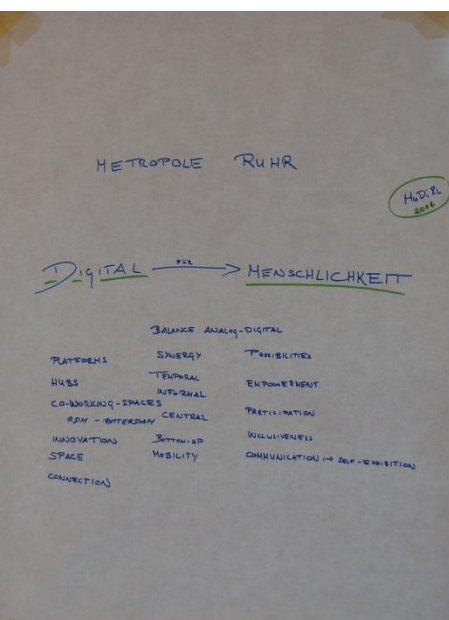 METROPOLE RUHR
HuDiKL
2016
DIGITAL FÜR → MENSCHLICHKEIT
BALANCE ANALOG-DIGITAL
PLATFORMS
HUBS
CO-WORKING-SPACES
RDM - ROTTERDAM
INNOVATION
SPACE
CONNECTION
SYNERGY
TEMPORAL
INFORMAL
CENTRAL
BOTTOM-UP
MOBILITY
POSSIBILITIES
EMPOWERMENT
PARTICIPATION
INCLUSIVENESS
COMMUNICATION → SELF-EXHIBITION